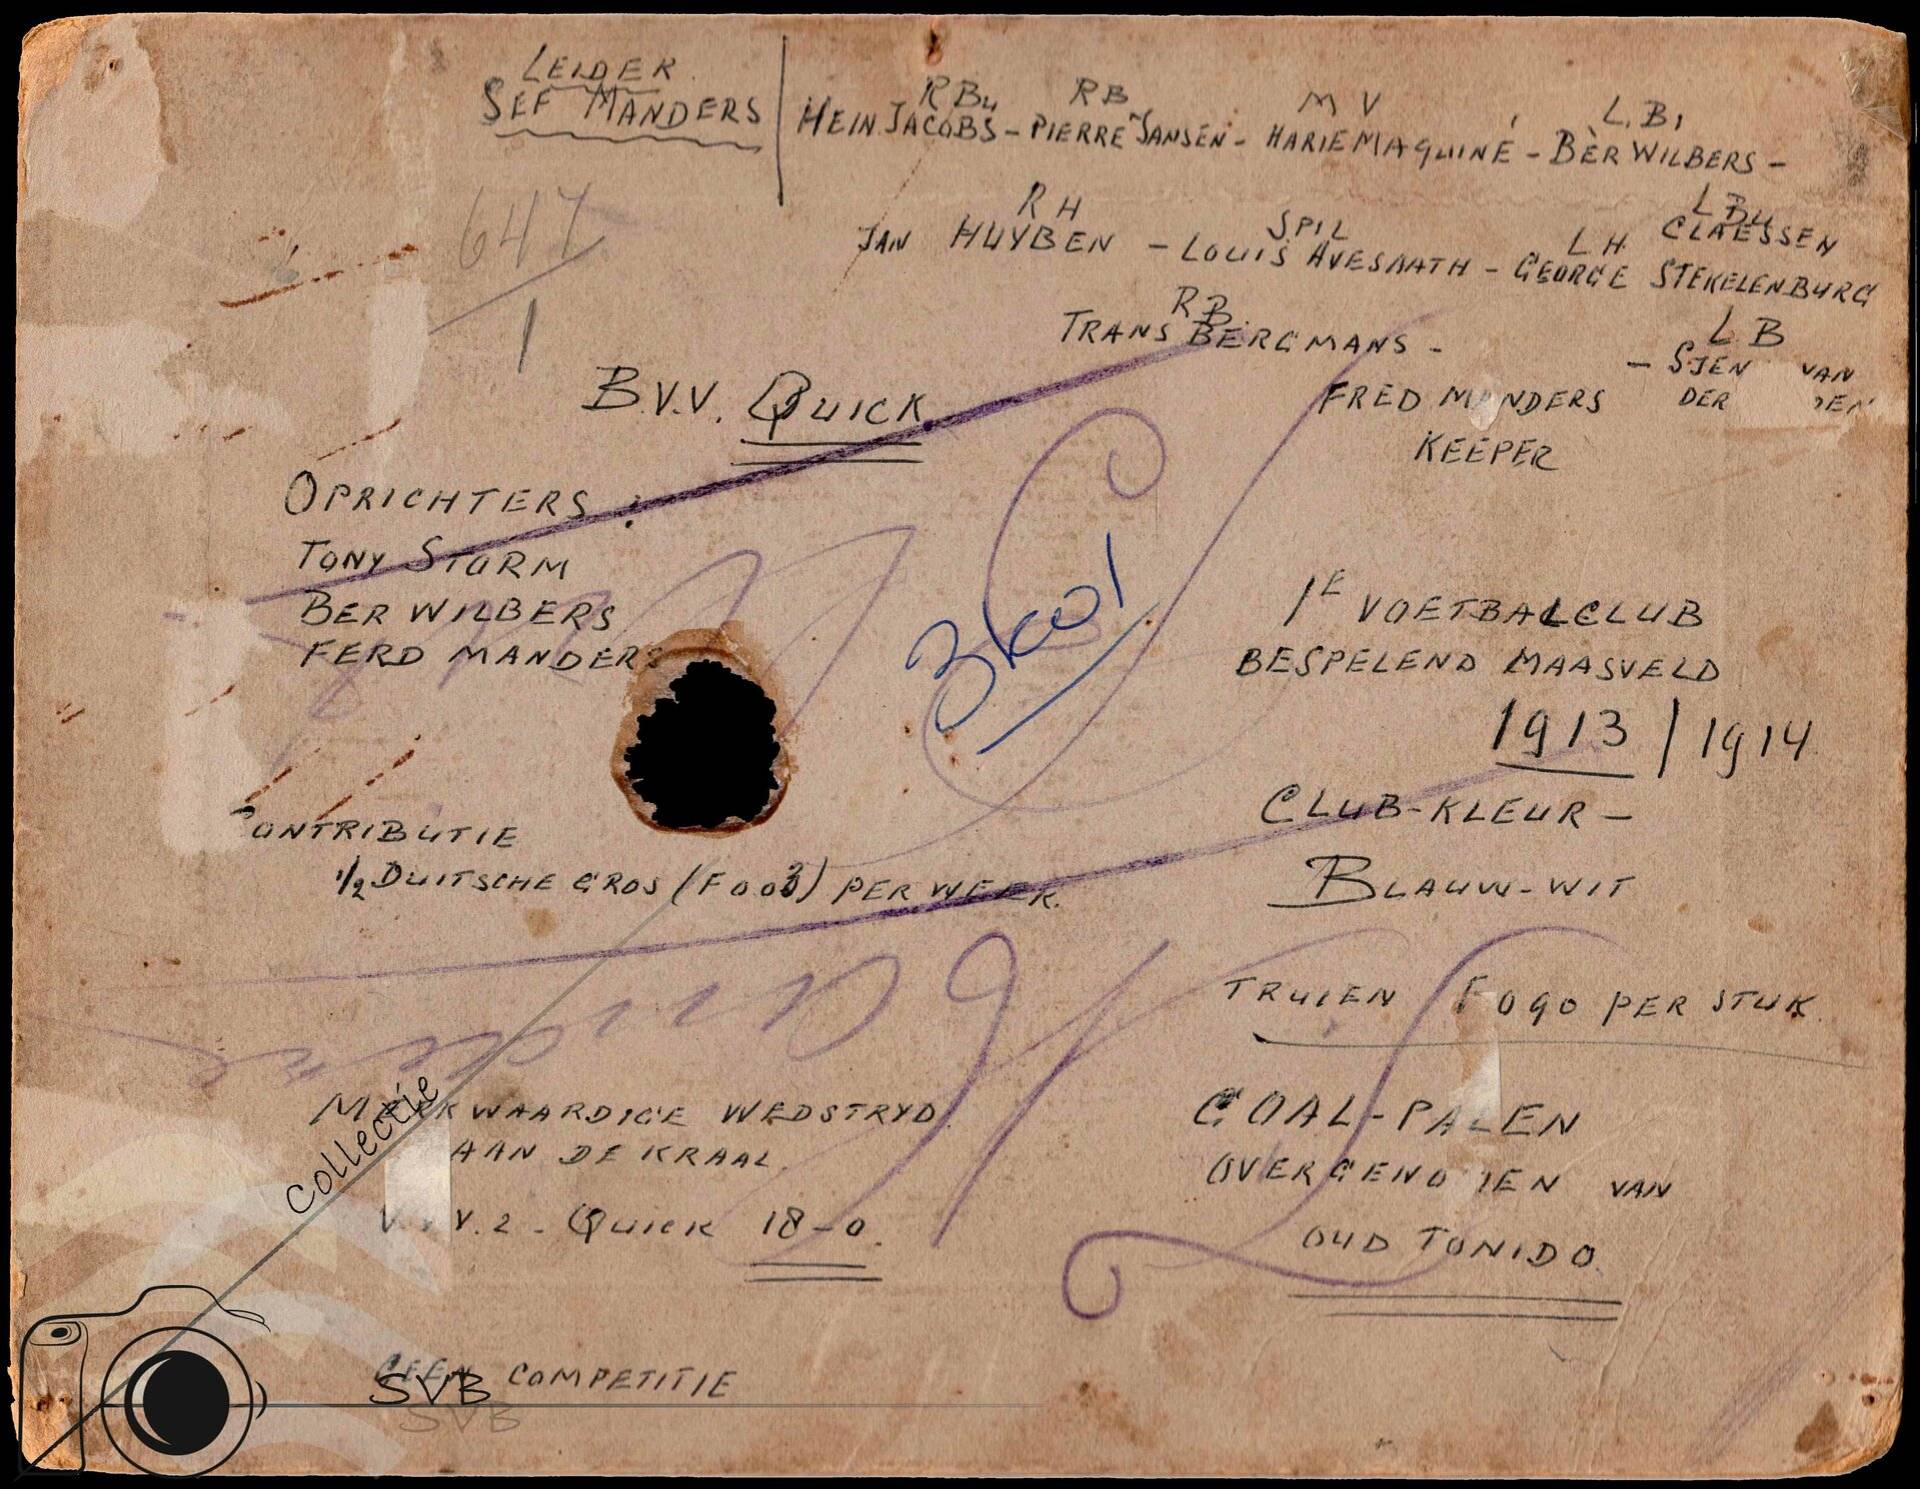 LEIDER
SEF MANDERS
RBu RB MV L.B,
HEIN JACOBS - PIERRE JANSEN - HARIE MAQUINÉ - BÈR WILBERS -
RH SPIL LH LBu
JAN HUYBEN - LOUIS AVESAATH - GEORGE STEKELENBURG
CLAESSEN
RB. LB
TRANS BERGMANS -
FRED MANDERS - SJEN VAN
DER
KEEPER
647
1
B.V.V. QUICK
OPRICHTERS:
TONY STORM
BER WILBERS
FERD MANDERS
1E VOETBALCLUB
BESPELEND MAASVELD
1913 / 1914
CLUB-KLEUR -
BLAUW-WIT
CONTRIBUTIE
1/2 DUITSCHE GROS (F 003) PER WEEK.
TRUIEN F 090 PER STUK.
MERKWAARDIGE WEDSTRYD.
AAN DE KRAAL.
V.V.2 - QUICK 18-0.
GOAL-PALEN
OVERGENOMEN VAN
OUD TONIDO.
GEEN COMPETITIE
Collectie
SVB